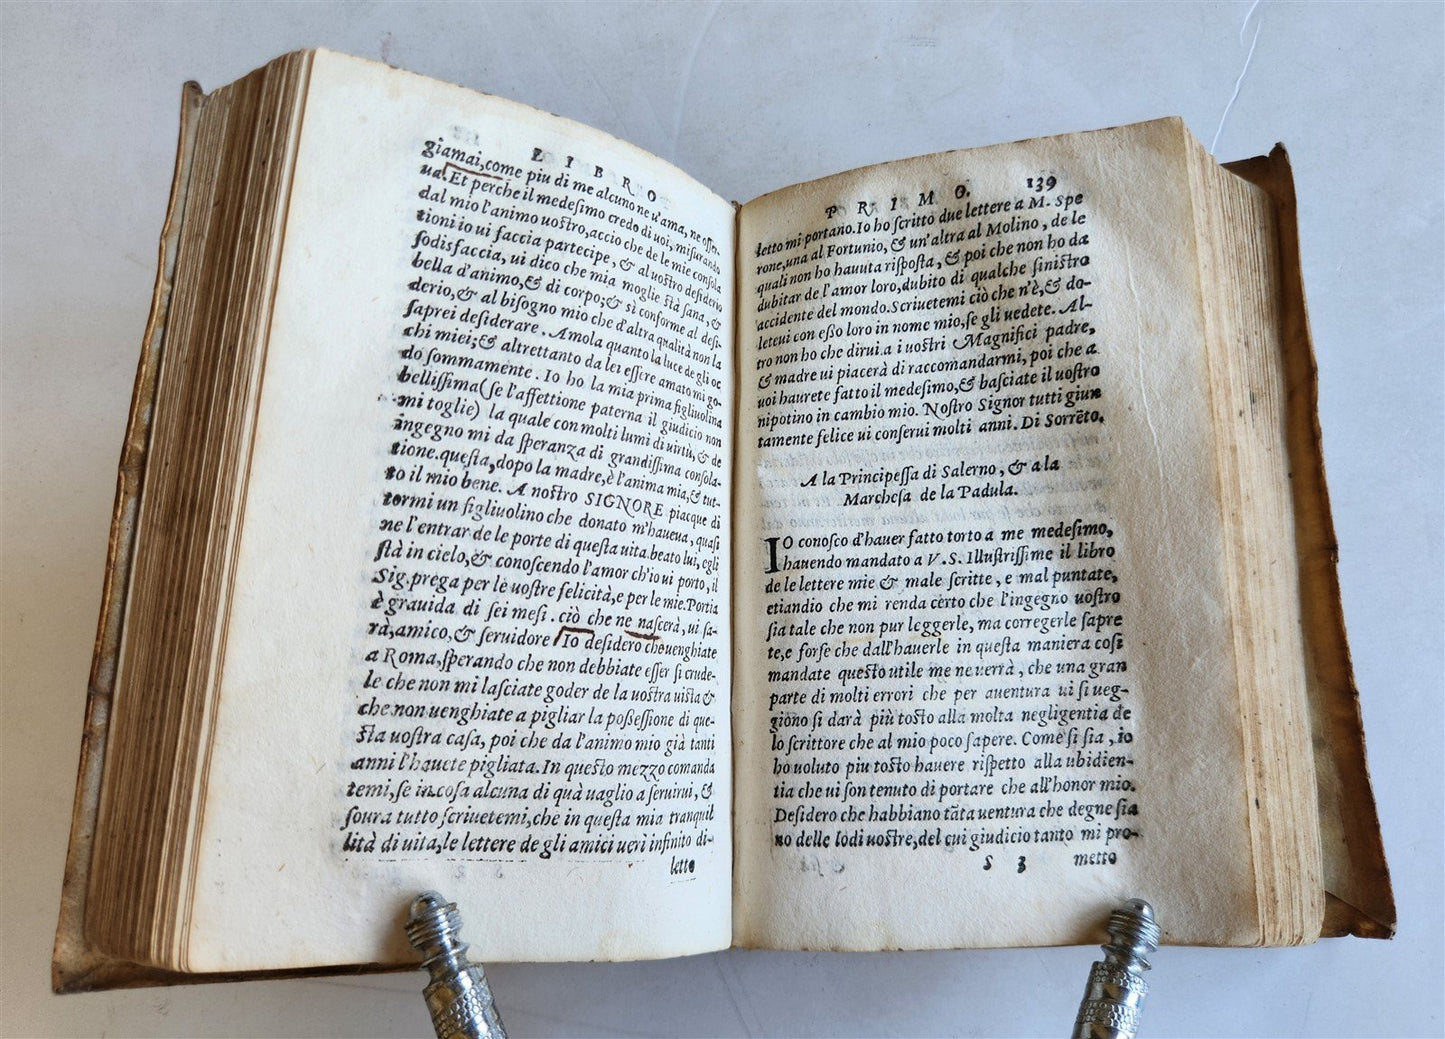 LIBRO
giamai, come piu di me alcuno ne u'ama, ne osser
ua. Et perche il medesimo credo di uoi, misurando
dal mio l'animo uostro, accio che de le mie consola
tioni io ui faccia partecipe, & al uostro desiderio
sodisfaccia, ui dico che mia moglie stà sana, &
bella d'animo, & di corpo; & sì conforme al desi
derio, & al bisogno mio che d'altra qualità non la
saprei desiderare. Amola quanto la luce de gli oc
chi miei; & altrettanto da lei essere amato mi go-
do sommamente. Io ho la mia prima figliuolina
bellissima (se l'affettione paterna il giudicio non
mi toglie) la quale con molti lumi di uirtù, & de
ingegno mi da speranza di grandissima consola-
tione. questa, dopo la madre, è l'anima mia, & tut-
to il mio bene. A nostro SIGNORE piacque di
tormi un figliuolino che donato m'haueua, quasi
ne l'entrar de le porte di questa uita. beato lui, egli
stà in cielo, & conoscendo l'amor ch'io ui porto, il
Sig. prega per le uostre felicità, e per le mie. Portia
è grauida di sei mesi. ciò che ne nascerà, ui sa-
rà, amico, & seruidore Io desidero che uenghiate
a Roma, sperando che non debbiate esser si crude-
le che non mi lasciate goder de la uostra uista &
che non uenghiate a pigliar la possessione di que-
sta uostra casa, poi che da l'animo mio già tanti
anni l'hauete pigliata. In questo mezzo comanda
temi, se in cosa alcuna di quà uaglio a seruirui, &
soura tutto scriuetemi, che in questa mia tranquil
lità di uita, le lettere de gli amici ueri infinito di-
letto
PRIMO. 139
letto mi portano. Io ho scritto due lettere a M. Spe
rone, una al Fortunio, & un'altra al Molino, de le
quali non ho hauuta risposta, & poi che non ho da
dubitar de l'amor loro, dubito di qualche sinistro
accidente del mondo. Scriuetemi ciò che n'è, & do-
leteui con esso loro in nome mio, se gli uedete. Al-
tro non ho che dirui. a i uostri Magnifici padre,
& madre ui piacerà di raccomandarmi, poi che a
uoi haurete fatto il medesimo, & basciate il uostro
nipotino in cambio mio. Nostro Signor tutti giun
tamente felice ui conserui molti anni. Di Sorrẽto.
A la Principessa di Salerno, & a la
Marchesa de la Padula.
IO conosco d'hauer fatto torto a me medesimo,
hauendo mandato a V. S. Illustrissime il libro
de le lettere mie & male scritte, e mal puntate,
etiandio che mi renda certo che l'ingegno uostro
sia tale che non pur leggerle, ma corregerle sapre
te, e forse che dall'hauerle in questa maniera così
mandate questo utile me ne uerrà, che una gran
parte di molti errori che per auentura ui si ueg-
giono si darà più tosto alla molta negligentia de
lo scrittore che al mio poco sapere. Come si sia, io
ho uoluto piu tosto hauere rispetto alla ubidien-
tia che ui son tenuto di portare che all'honor mio.
Desidero che habbiano tãta uentura che degne sia
no delle lodi uostre, del cui giudicio tanto mi pro-
S 3 metto